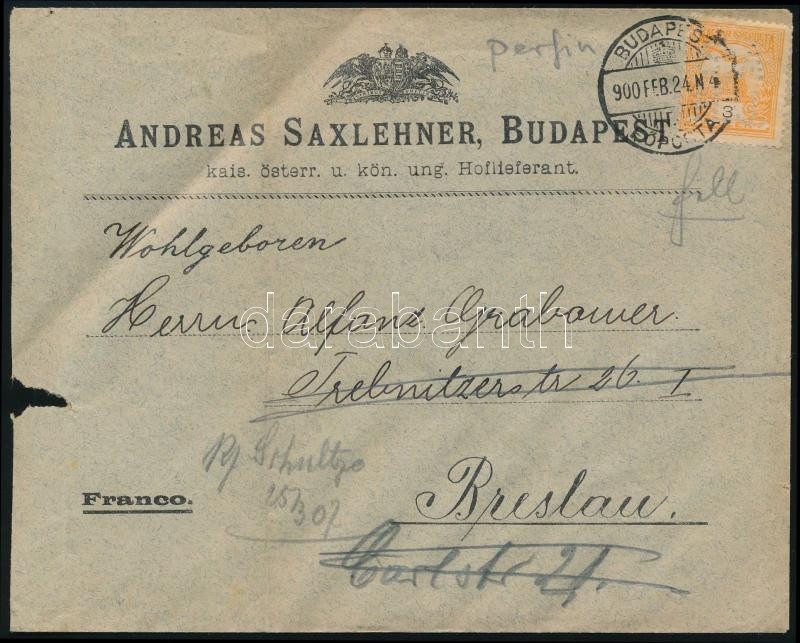 perfin
BUDAPEST
900 FEB. 24. N 4
3
FŐPOSTA
ANDREAS SAXLEHNER, BUDAPEST
kais. österr. u. kön. ung. Hoflieferant.
Wohlgeboren
Herrn Alfons Grabower.
darabanth
Trebnitzerstr 26. I
Schultze
Franco.
Breslau.
Carlstr 21.